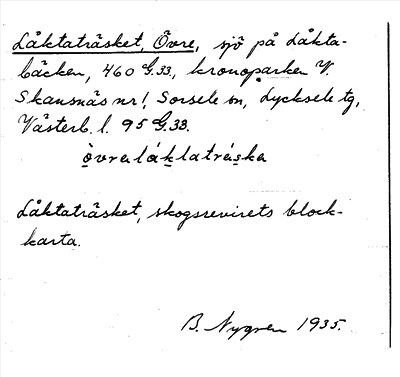 Låktaträsket, Övre, sjö på Låkta-
bäcken, 460 G.33, kronoparken V.
Skansnäs nr 1, Sorsele sn, Lycksele tg,
Västerb. l. 95 G.33.
òvra lákta tráska
Låktaträsket, skogsrevirets block-
karta.
B. Nygren 1935.